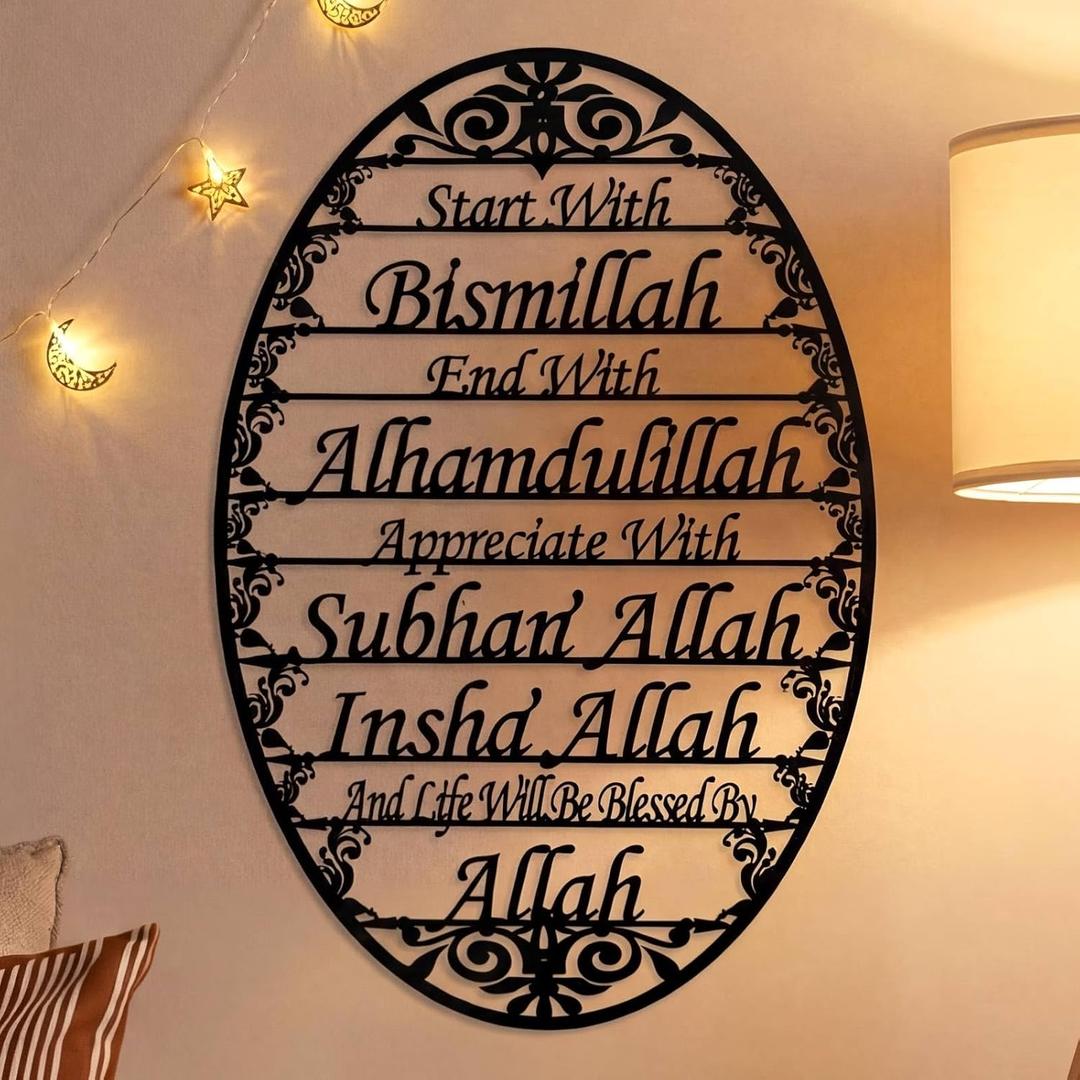 Start With
Bismillah
End With
Alhamdulillah
Appreciate With
Subhan Allah
Insha Allah
And Life Will Be Blessed By
Allah